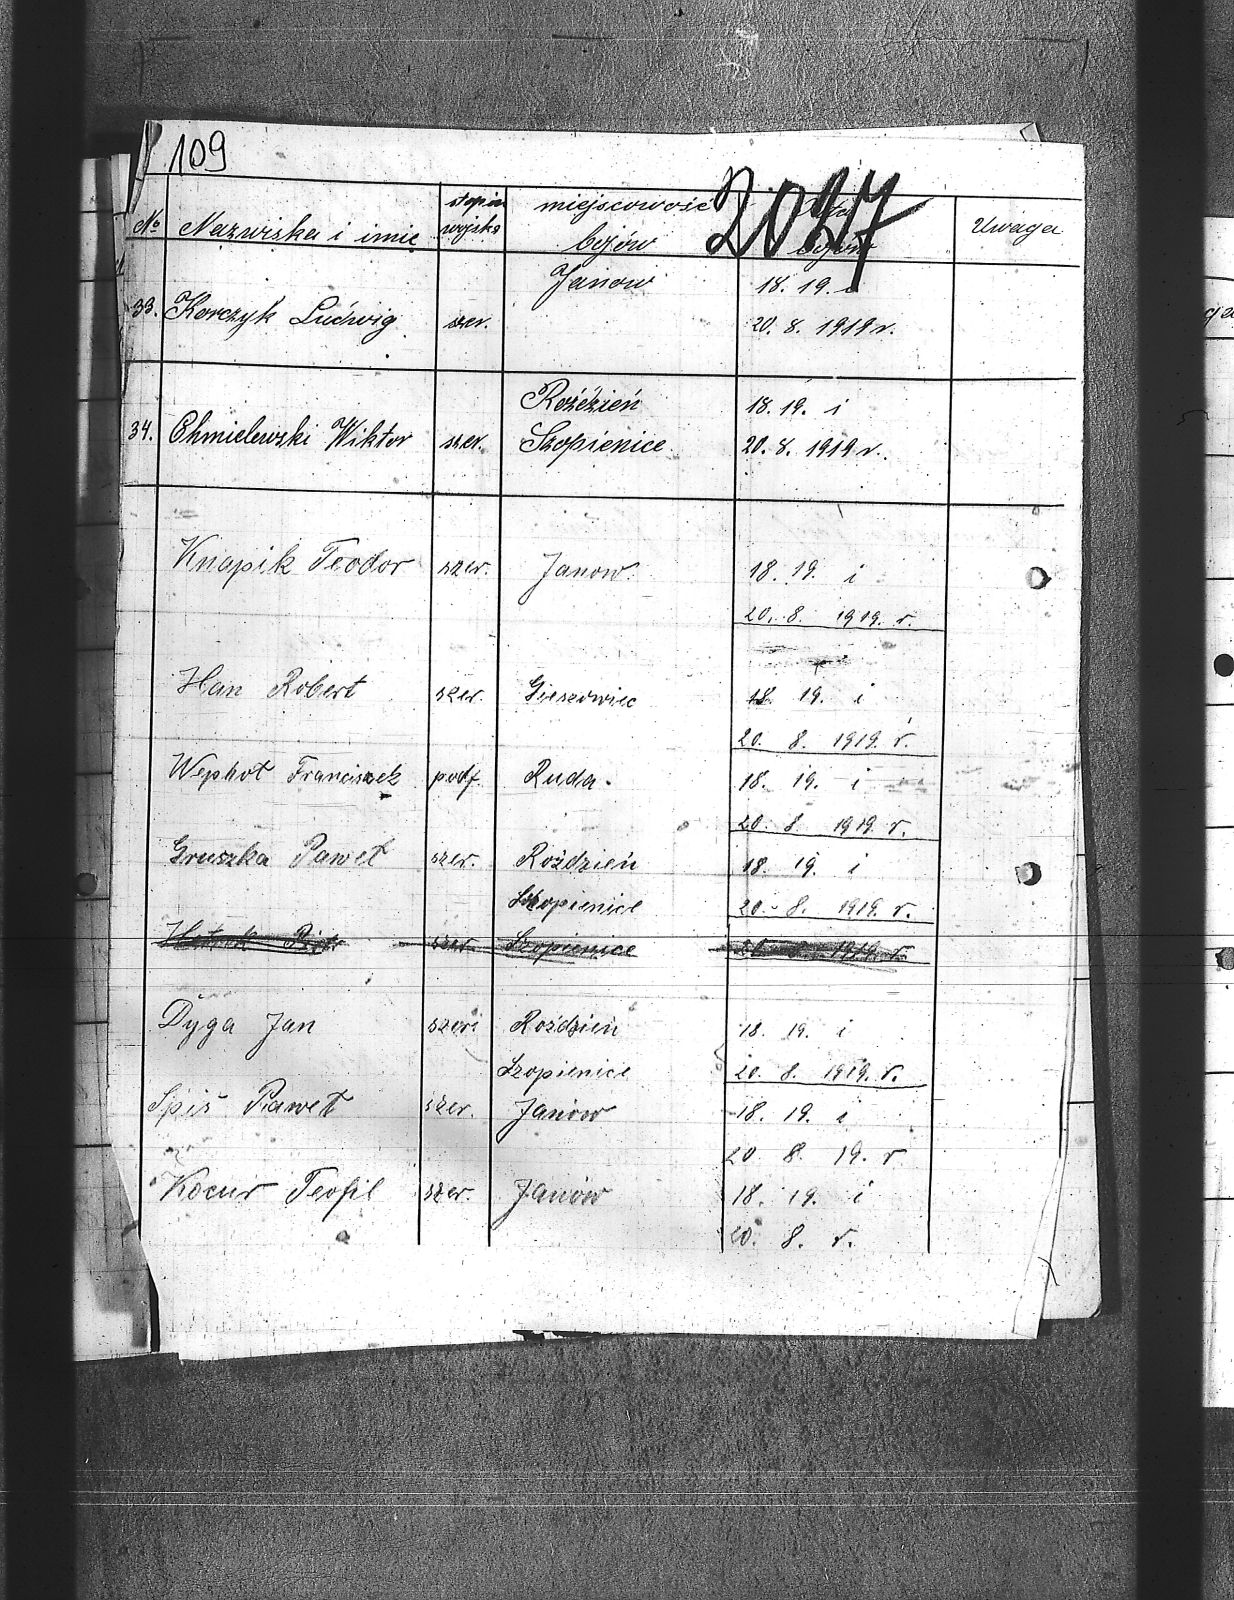 109
2027
No Nazwiska i imię stopień wojsko miejscowość bojów bojów Uwaga
Janow 18. 19. i
33. Korczyk Ludwig szer. 20. 8. 1919 r.
Roździeń 18. 19. i
34. Chmielewski Wiktor szer. Szopienice 20. 8. 1919 r.
Knapik Teodor szer. Janow. 18. 19. i
20. 8. 1919. r.
Han Robert szer. Gieszowiec 18. 19. i
20. 8. 1919. r.
Wephot Franciszek podf. Ruda. 18. 19. i
20. 8. 1919. r.
Gruszka Paweł szer. Roździeń 18. 19. i
Szopienice 20. 8. 1919. r.
szer. Szopienice 20. 8. 1919. r.
Dyga Jan szer. Roździeń 18. 19. i
Szopienice 20. 8. 1919. r.
Spiś Paweł szer. Janów 18. 19. i
20. 8. 19. r
Kocur Teofil szer. Janów 18. 19. i
20. 8. r.